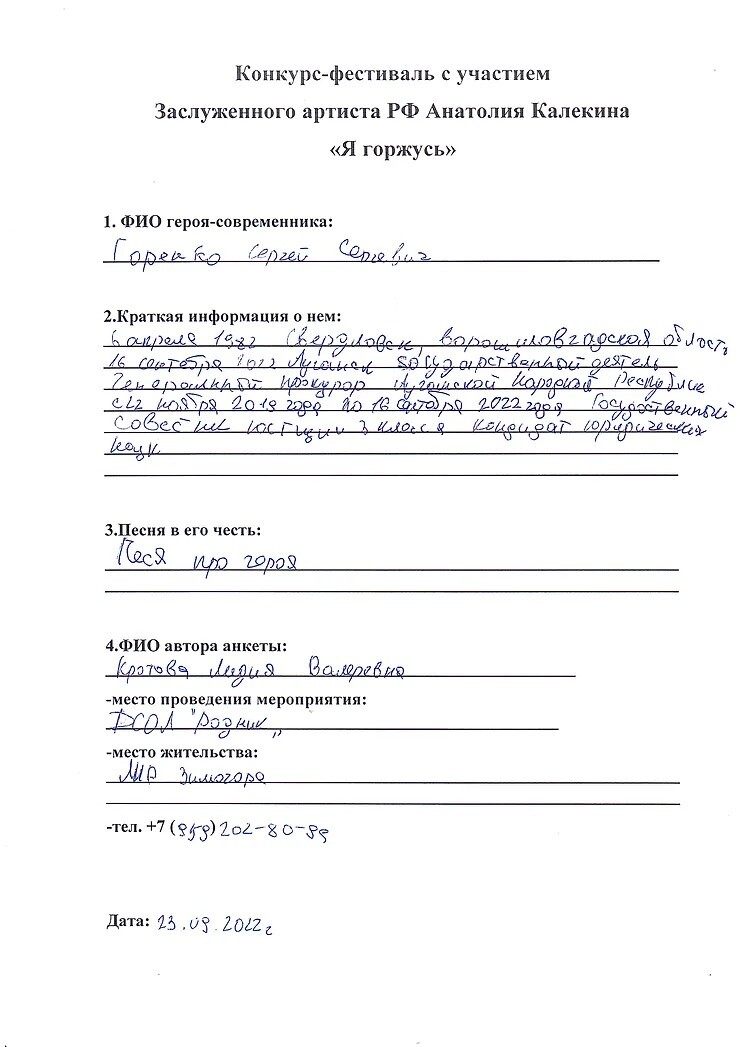 Конкурс-фестиваль с участием
Заслуженного артиста РФ Анатолия Калекина
«Я горжусь»
1. ФИО героя-современника:
Горенко Сергей Сергевич
2.Краткая информация о нем:
6 апреля 1982 Свердловск, ворошиловградская область,
16 сентября 2022 Луганск государственный деятель
Генеральный прокурор Луганской Народной Республике
с 22 ноября 2019 года по 16 сентября 2022 года Государственный
Советник юстиции 3 класса кандидат юридических
наук
3.Песня в его честь:
Песя про героя
4.ФИО автора анкеты:
Кротова Лидия Валеревна
-место проведения мероприятия:
ДСОЛ "Родник„
-место жительства:
ЛНР Зимогорье
-тел. +7 (959) 202-80-89
Дата: 23.09.2022г